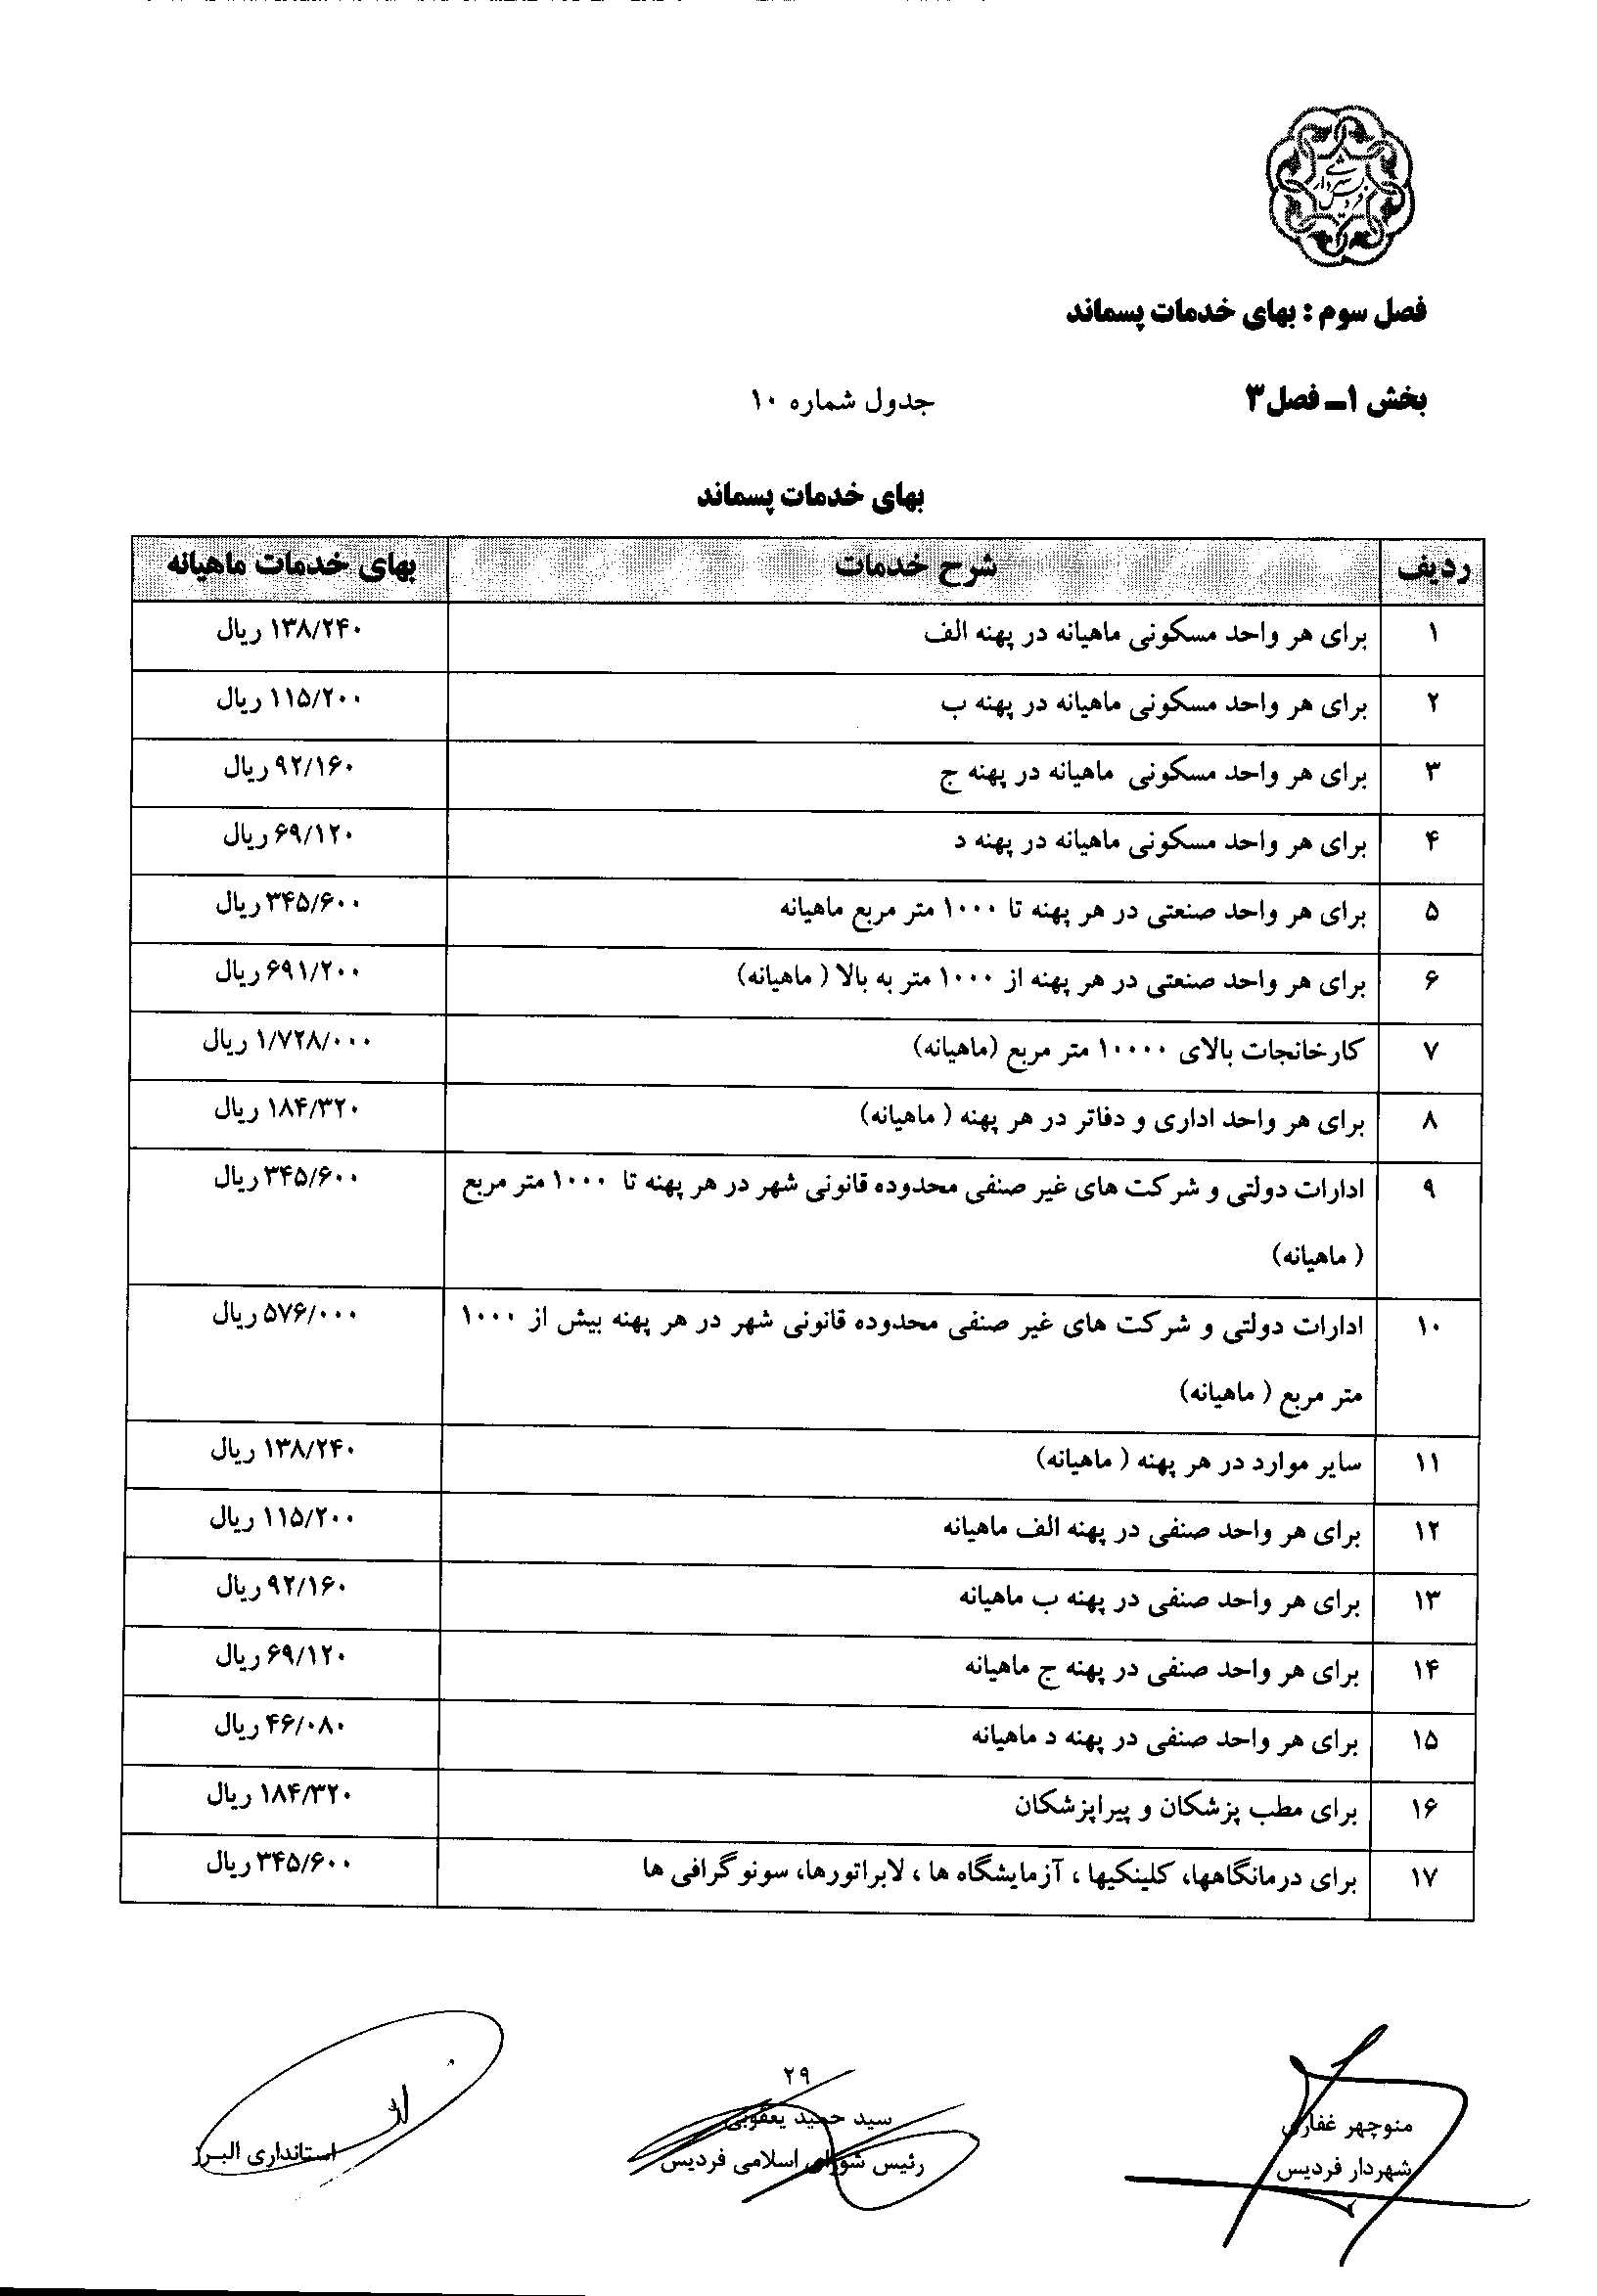 شهرداری فردیس
فصل سوم : بهای خدمات پسماند
بخش ۱ـ فصل۳
جدول شماره ۱۰
بهای خدمات پسماند
ردیف شرح خدمات بهای خدمات ماهیانه
۱ برای هر واحد مسکونی ماهیانه در پهنه الف ۱۳۸/۲۴۰ ریال
۲ برای هر واحد مسکونی ماهیانه در پهنه ب ۱۱۵/۲۰۰ ریال
۳ برای هر واحد مسکونی ماهیانه در پهنه ج ۹۲/۱۶۰ ریال
۴ برای هر واحد مسکونی ماهیانه در پهنه د ۶۹/۱۲۰ ریال
۵ برای هر واحد صنعتی در هر پهنه تا ۱۰۰۰ متر مربع ماهیانه ۳۴۵/۶۰۰ ریال
۶ برای هر واحد صنعتی در هر پهنه از ۱۰۰۰ متر به بالا ( ماهیانه) ۶۹۱/۲۰۰ ریال
۷ کارخانجات بالای ۱۰۰۰۰ متر مربع (ماهیانه) ۱/۷۲۸/۰۰۰ ریال
۸ برای هر واحد اداری و دفاتر در هر پهنه ( ماهیانه) ۱۸۴/۳۲۰ ریال
۹ ادارات دولتی و شرکت های غیر صنفی محدوده قانونی شهر در هر پهنه تا ۱۰۰۰ متر مربع ۳۴۵/۶۰۰ ریال
( ماهیانه)
۱۰ ادارات دولتی و شرکت های غیر صنفی محدوده قانونی شهر در هر پهنه بیش از ۱۰۰۰ ۵۷۶/۰۰۰ ریال
متر مربع ( ماهیانه)
۱۱ سایر موارد در هر پهنه ( ماهیانه) ۱۳۸/۲۴۰ ریال
۱۲ برای هر واحد صنفی در پهنه الف ماهیانه ۱۱۵/۲۰۰ ریال
۱۳ برای هر واحد صنفی در پهنه ب ماهیانه ۹۲/۱۶۰ ریال
۱۴ برای هر واحد صنفی در پهنه ج ماهیانه ۶۹/۱۲۰ ریال
۱۵ برای هر واحد صنفی در پهنه د ماهیانه ۴۶/۰۸۰ ریال
۱۶ برای مطب پزشکان و پیراپزشکان ۱۸۴/۳۲۰ ریال
۱۷ برای درمانگاهها، کلینکیها ، آزمایشگاه ها ، لابراتورها، سونوگرافی ها ۳۴۵/۶۰۰ ریال
۲۹
منوچهر غفاری
شهردار فردیس
سید حمید یعقوبی
رئیس شورای اسلامی فردیس
استانداری البرز